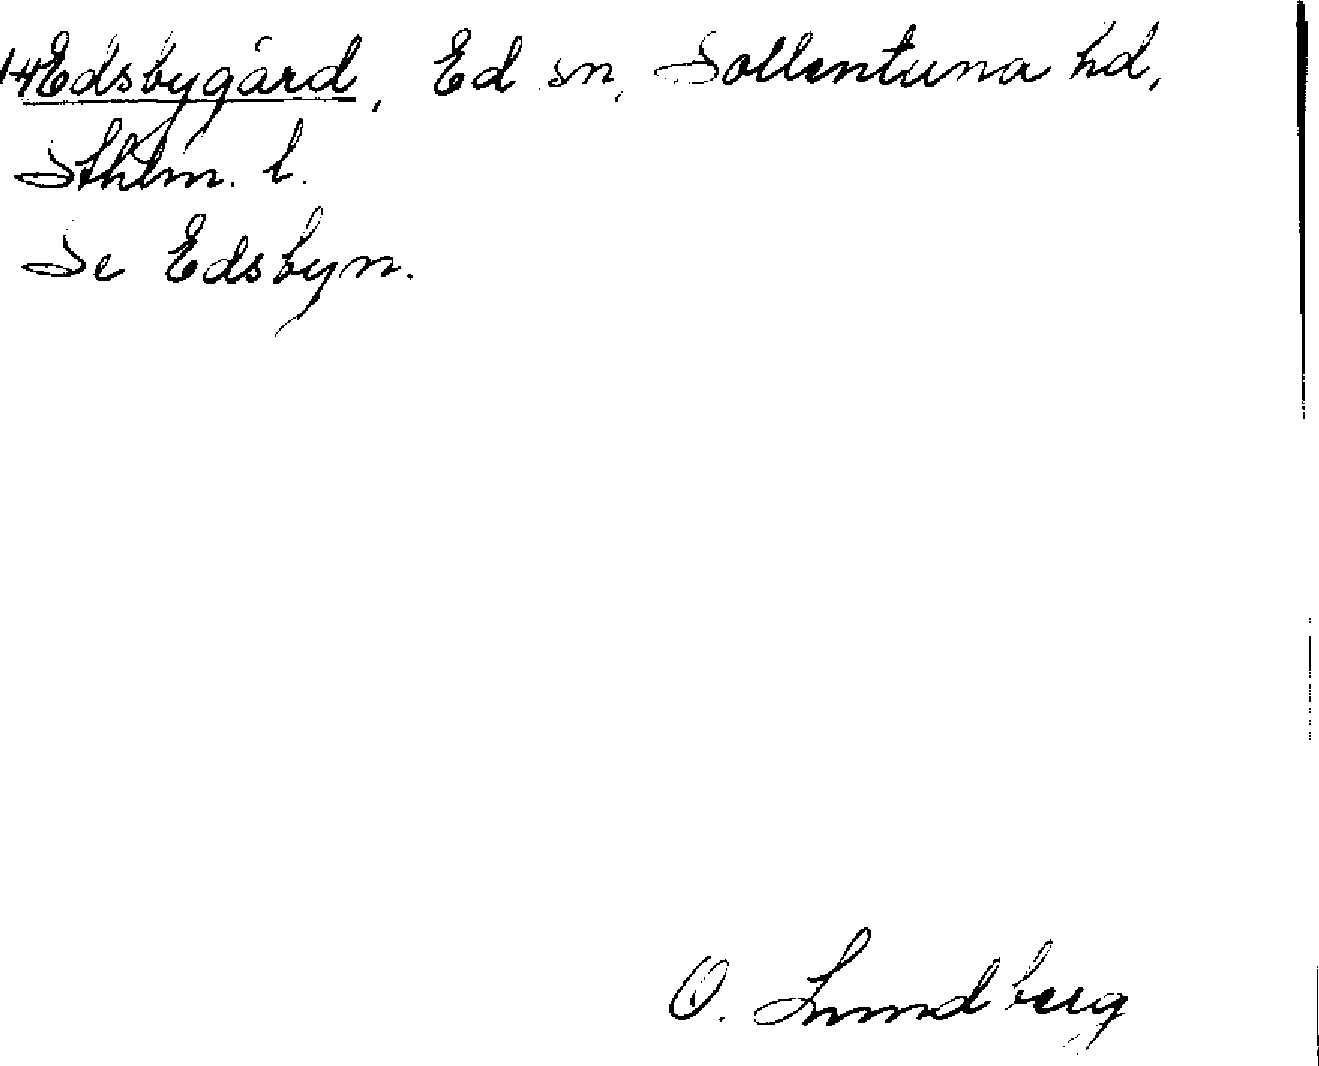 Edsbygård, Ed sn, Sollentuna hd,
Sthlm. l.
Se Edsbyn.
O. Lundberg